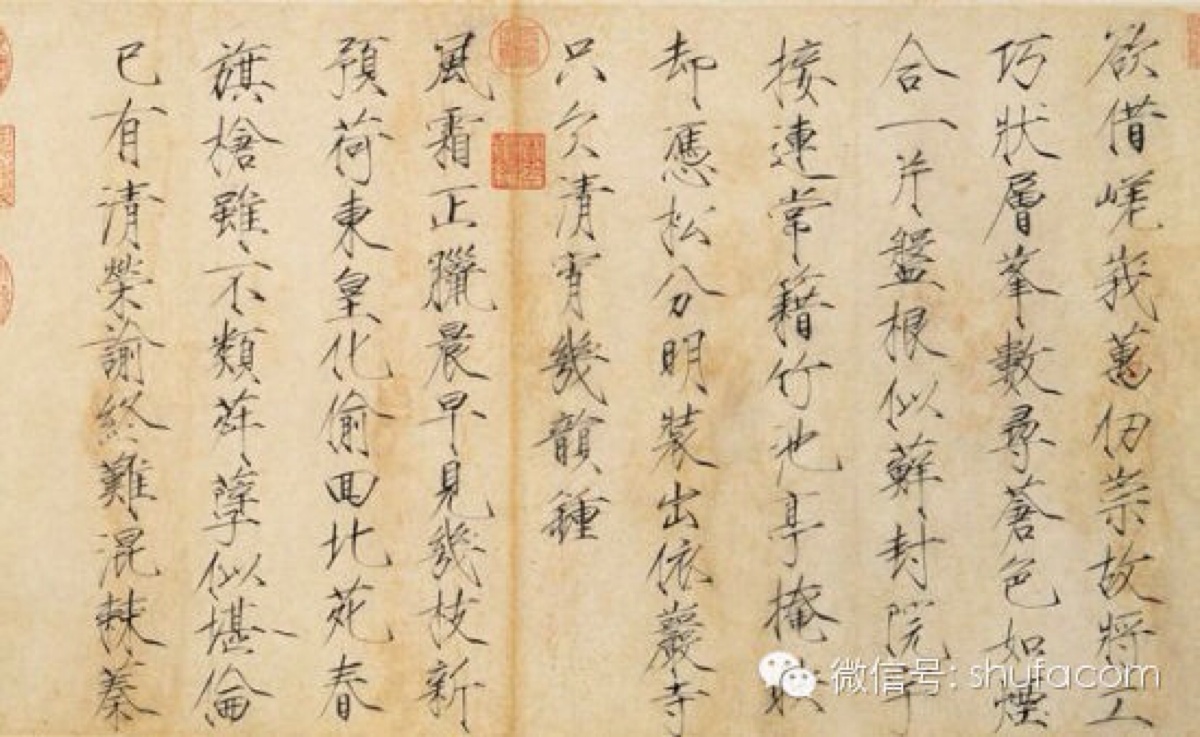 欲借嵯峩萬仞崇故將工
巧狀層峯數尋蒼色如煙
合一片盤根似蘚封院宇
接連常藉竹池亭掩映
却憑松分明裝出依巖寺
只欠清宵幾韻鍾
風霜正臘晨早見幾枝新
預荷東皇化偷回北苑春
旗槍雖不類荈蘖似堪倫
已有清榮諭終難混棘蓁
微信号: shufacom